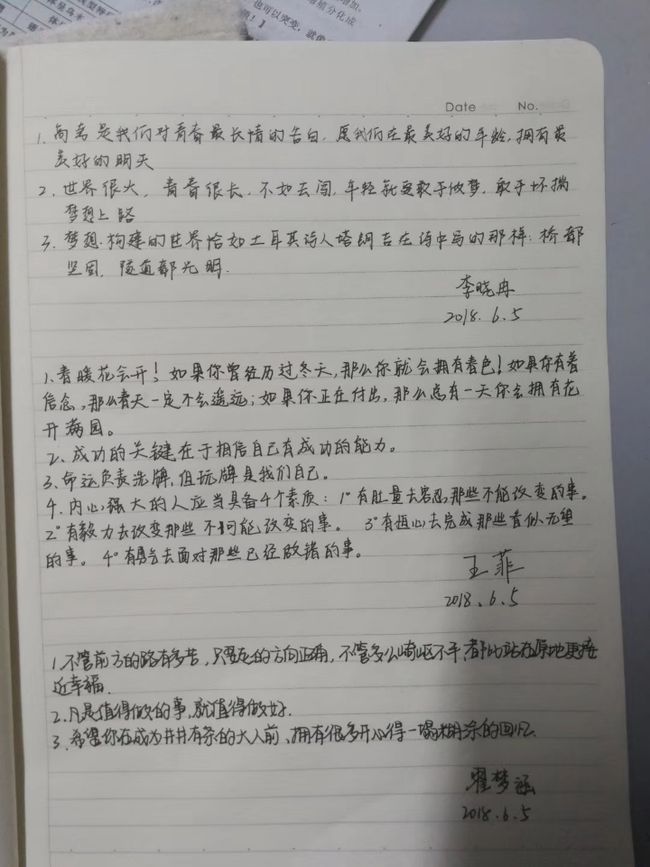 增加。
植分化成
也可以突变，就像
Date No.
1. 高考是我们对青春最长情的告白，愿我们在最美好的年龄，拥有最
美好的明天
2. 世界很大，青春很长，不如去闯，年轻就要敢于做梦，敢于怀揣
梦想上路
3. 梦想构建的世界恰如土耳其诗人塔朗吉在诗中写的那样：桥都
坚固，隧道都光明.
李晓冉
2018.6.5
1、春暖花会开！如果你曾经历过冬天，那么你就会拥有春色！如果你有着
信念，那么春天一定不会遥远；如果你正在付出，那么总有一天你会拥有花
开满园。
2、成功的关键在于相信自己有成功的能力。
3、命运负责洗牌，但玩牌是我们自己。
4、内心强大的人应当具备4个素质：1°有肚量去容忍那些不能改变的事。
2°有毅力去改变那些不可能改变的事。 3°有恒心去完成那些看似无望
的事。 4°有勇气去面对那些已经败绪的事。
王菲
2018.6.5
1、不管前方的路有多苦，只要走的方向正确，不管多么崎岖不平，都比站在原地更接
近幸福.
2、凡是值得做的事，就值得做好.
3、希望你在成为井井有条的大人前，拥有很多开心得一塌糊涂的回忆
翟梦涵
2018.6.5